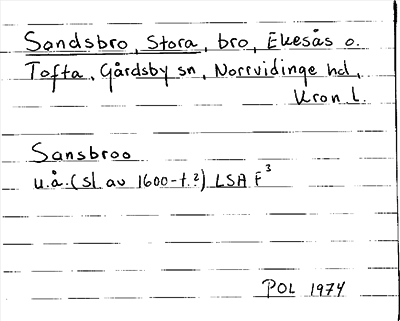 Sandsbro, Stora, bro, Ekesås o.
Tofta, Gårdsby sn, Norrvidinge hd,
Kron. l.
Sansbroo
u.å. (sl av 1600-t.?) LSA F³
POL 1974